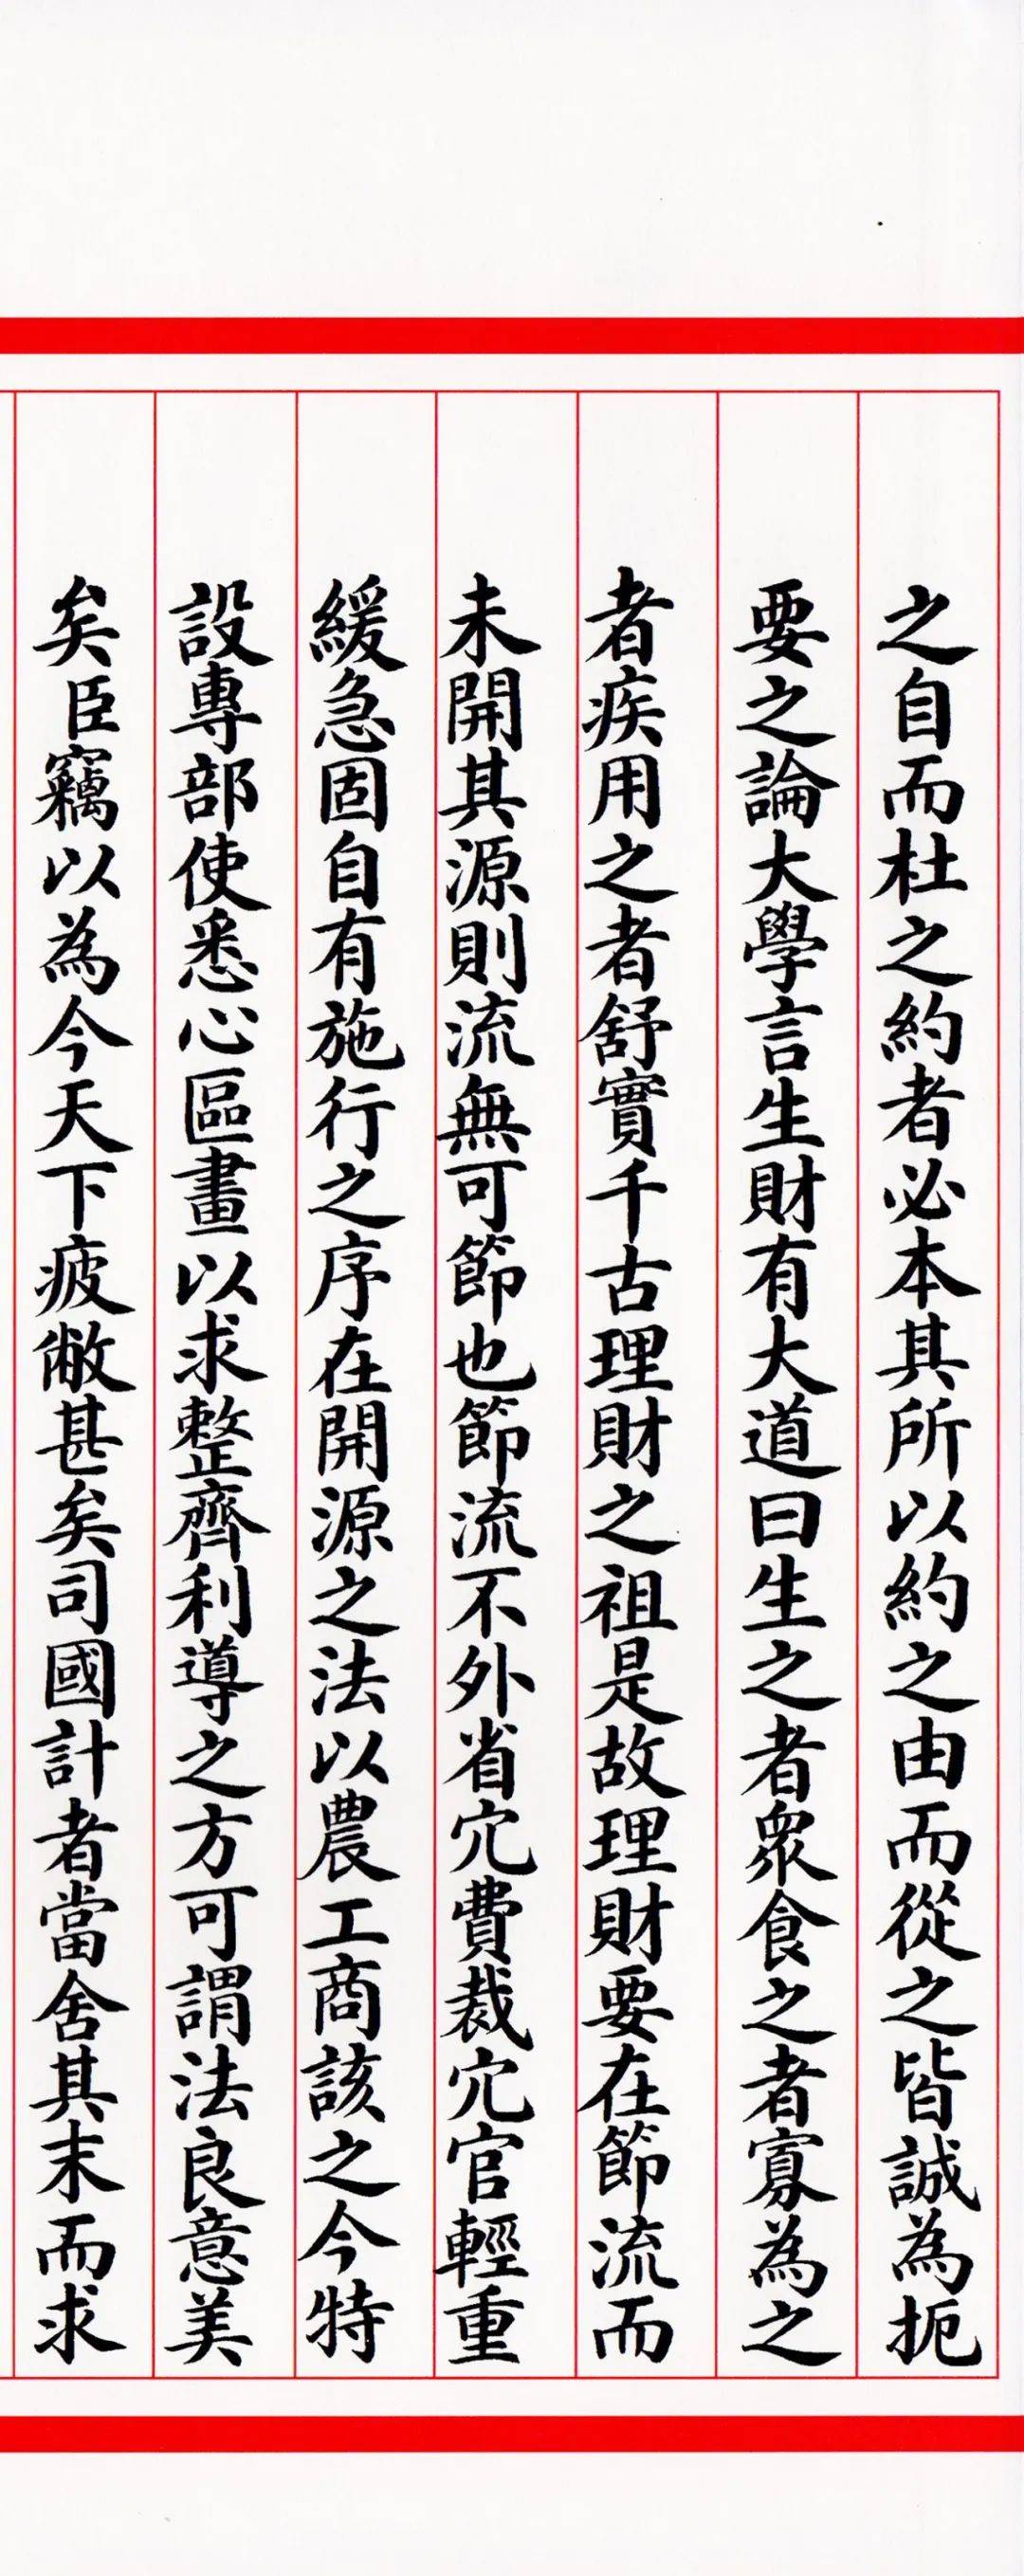 之自而杜之約者必本其所以約之由而從之皆誠為扼
要之論大學言生財有大道曰生之者衆食之者寡為之
者疾用之者舒實千古理財之祖是故理財要在節流而
未開其源則流無可節也節流不外省宂費裁宂官輕重
緩急固自有施行之序在開源之法以農工商該之今特
設專部使悉心區畫以求整齊利導之方可謂法良意美
矣臣竊以為今天下疲敝甚矣司國計者當舍其末而求